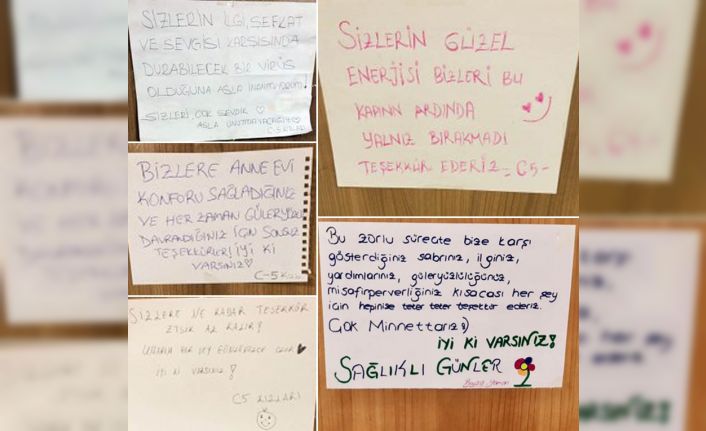 SİZLERİN İLGİ, ŞEFKAT
VE SEVGİSİ KARŞISINDA
DURABİLECEK BİR VİRÜS
OLDUĞUNA ASLA İNANMIYORUM!
SİZLERİ ÇOK SEVDİK ♡
ASLA UNUTMAYACAĞIZ ♡
C-5 KIZLARI
BİZLERE ANNE EVİ
KONFORU SAĞLADIĞINIZ
VE HER ZAMAN GÜLERYÜZLÜ
DAVRANDIĞINIZ İÇİN SONSUZ
TEŞEKKÜRLER! İYİ Kİ
VARSINIZ ♡
C-5
SİZLERE NE KADAR TEŞEKKÜR
ETSEK AZ KALIR!
HER ŞEY
İYİ Kİ VARSINIZ!
C5 KIZLARI
SİZLERİN GÜZEL
ENERJİSİ BİZLERİ BU
KAPININ ARDINDA
YALNIZ BIRAKMADI
TEŞEKKÜR EDERİZ - C5 -
Bu zorlu süreçte bize karşı
gösterdiğiniz sabrınız, ilginiz,
yardımlarınız, güleryüzlülüğünüz,
misafirperverliğiniz kısacası her şey
için hepinize teker teker teşekkür ederiz.
Çok Minnettarız :)
İYİ Kİ VARSINIZ!
SAĞLIKLI GÜNLER